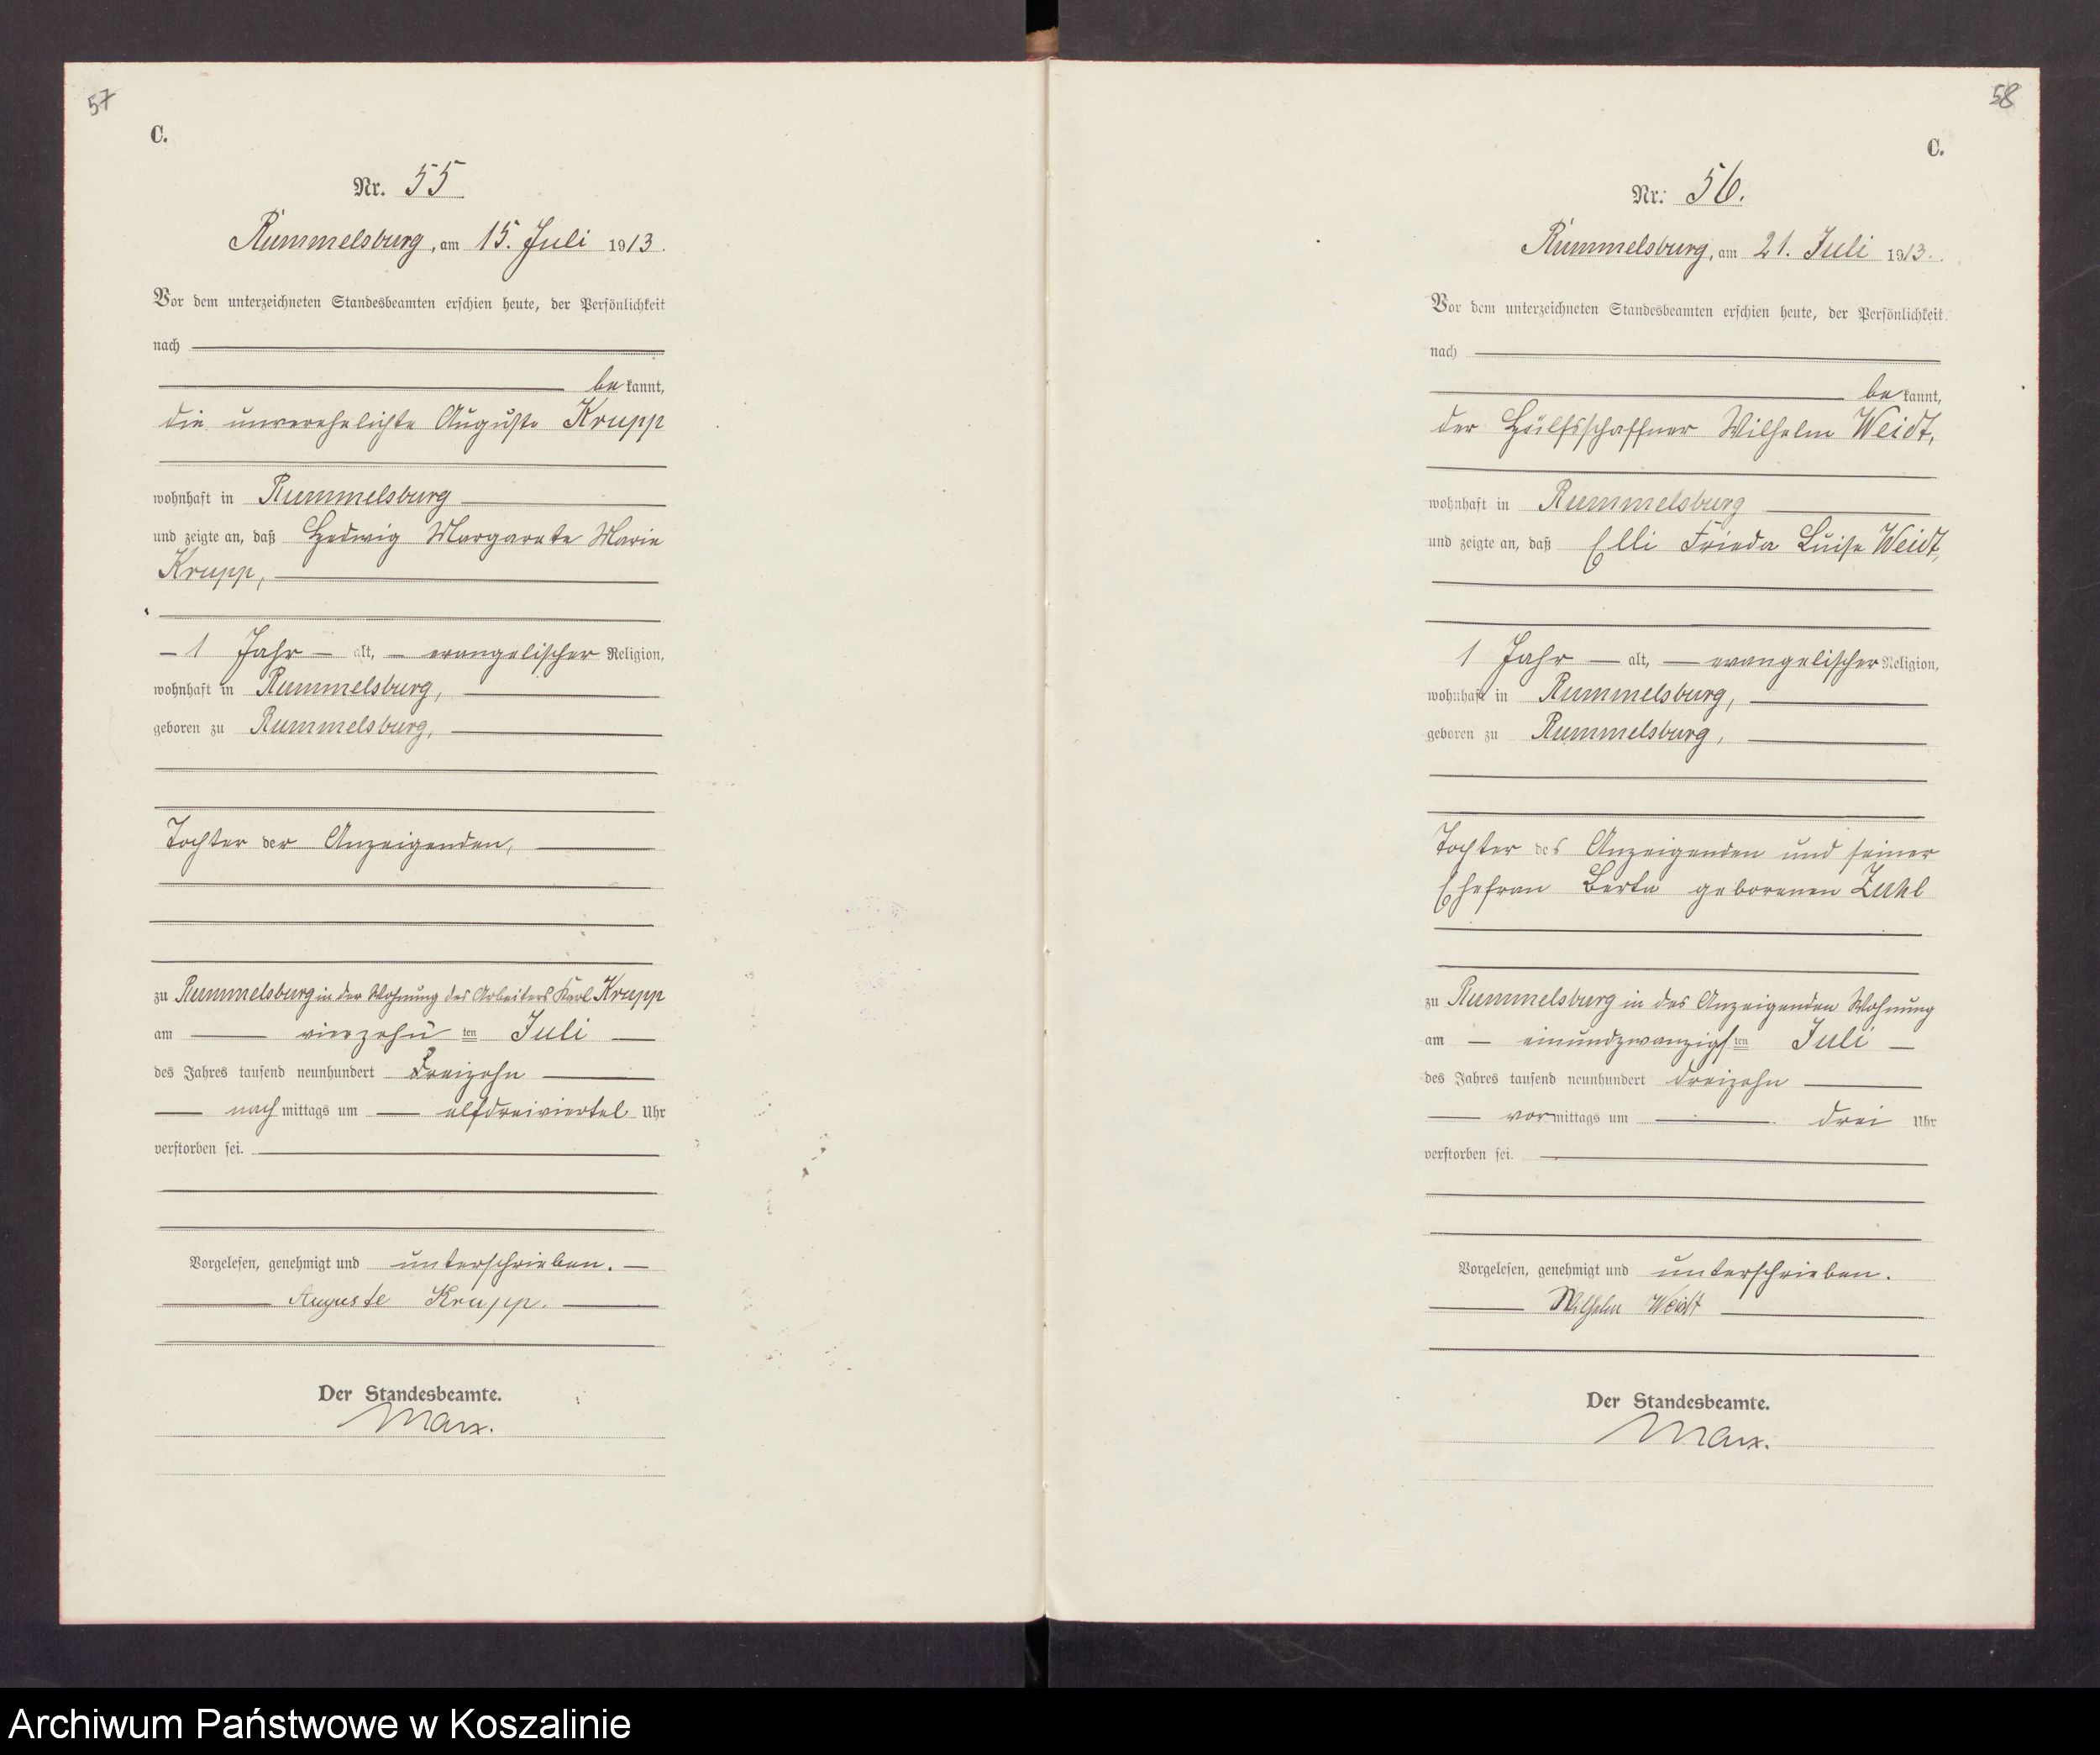 57
C.
Nr. 55
Rummelsburg, am 15. Juli 1913.
Vor dem unterzeichneten Standesbeamten erschien heute, der Persönlichkeit
nach
bekannt,
die unverehelichte Auguste Krupp
wohnhaft in Rummelsburg
und zeigte an, daß Hedwig Margarete Marie
Krupp,
1 Jahr alt, evangelischer Religion,
wohnhaft in Rummelsburg,
geboren zu Rummelsburg,
Tochter der Anzeigenden,
zu Rummelsburg in der Wohnung des Arbeiters Karl Krupp
am vierzehnten Juli
des Jahres tausend neunhundert dreizehn
nachmittags um elfdreiviertel Uhr
verstorben sei.
Vorgelesen, genehmigt und unterschrieben.
Auguste Krupp.
Der Standesbeamte.
Marx.
58
C.
Nr. 56.
Rummelsburg, am 21. Juli 1913.
Vor dem unterzeichneten Standesbeamten erschien heute, der Persönlichkeit
nach
bekannt,
der Hülfsschaffner Wilhelm Weidt,
wohnhaft in Rummelsburg
und zeigte an, daß Elli Frieda Luise Weidt,
1 Jahr alt, evangelischer Religion,
wohnhaft in Rummelsburg,
geboren zu Rummelsburg,
Tochter des Anzeigenden und seiner
Ehefrau Berta geborenen Zuhl
zu Rummelsburg in des Anzeigenden Wohnung
am einundzwanzigsten Juli
des Jahres tausend neunhundert dreizehn
vormittags um drei Uhr
verstorben sei.
Vorgelesen, genehmigt und unterschrieben.
Wilhelm Weidt
Der Standesbeamte.
Marx.
Archiwum Państwowe w Koszalinie